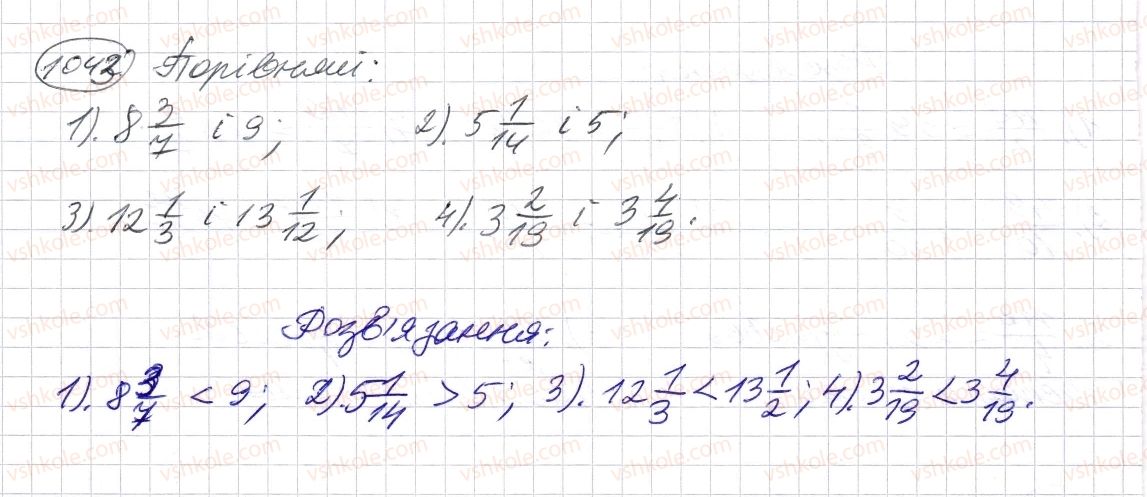 1043) Порівняй:
1). 8 3/7 і 9; 2). 5 1/14 і 5;
3). 12 1/3 і 13 1/12; 4). 3 2/19 і 3 4/19.
Розв'язання:
1). 8 3/7 < 9; 2). 5 1/14 > 5; 3). 12 1/3 < 13 1/2; 4). 3 2/19 < 3 4/19.